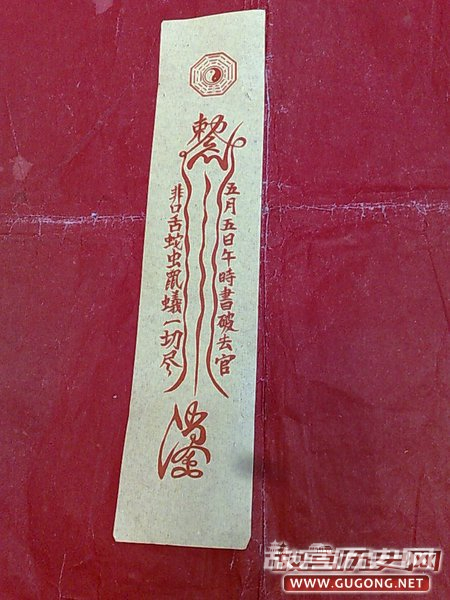 敕令
五月五日午時書破去官
非口舌蛇虫鼠蟻一切尽
故宫历史网
WWW.GUGONG.NET